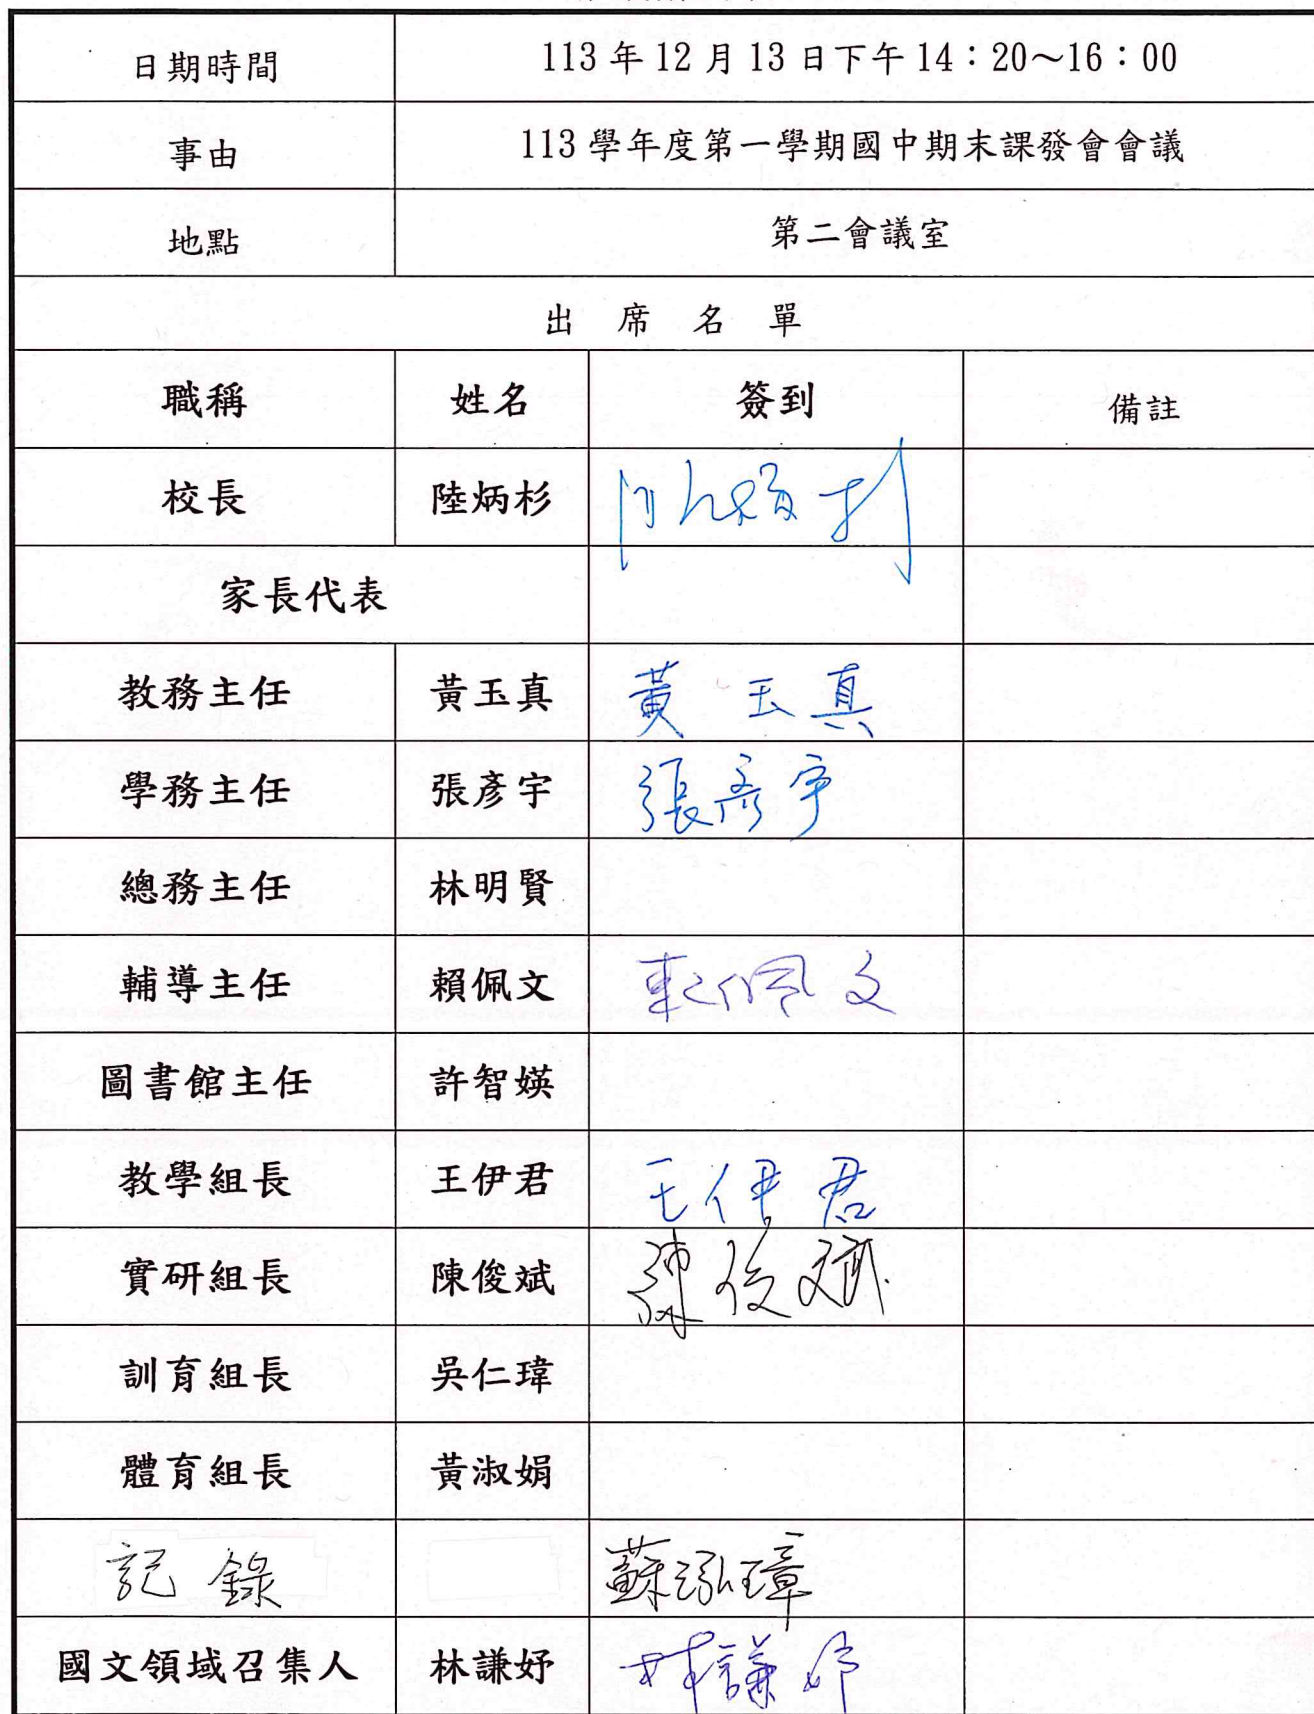 日期時間 113年12月13日下午14:20～16:00
事由 113學年度第一學期國中期末課發會會議
地點 第二會議室
出席名單
職稱 姓名 簽到 備註
校長 陸炳杉
家長代表
教務主任 黃玉真 黃玉真
學務主任 張彥宇 張彥宇
總務主任 林明賢
輔導主任 賴佩文 賴佩文
圖書館主任 許智媖
教學組長 王伊君 王伊君
實研組長 陳俊斌 陳俊斌
訓育組長 吳仁瑋
體育組長 黃淑娟
記錄 蘇泓璋
國文領域召集人 林謙妤 林謙妤